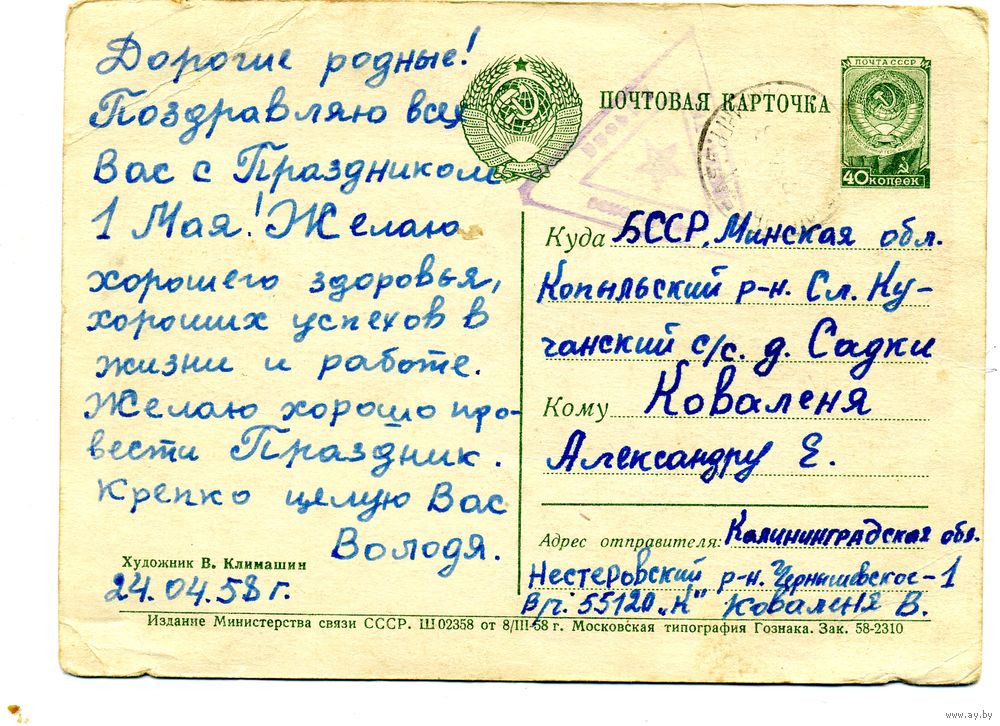 Дорогие родные!
Поздравляю всех
Вас с Праздником
1 Мая! Желаю
хорошего здоровья,
хороших успехов в
жизни и работе.
Желаю хорошо про-
вести Праздник.
Крепко целую Вас
Володя.
Художник В. Климашин
24.04.58 г.
ПОЧТОВАЯ КАРТОЧКА
ПОЧТА СССР
40 КОПЕЕК
Куда БССР, Минская обл.
Копыльский р-н. Сл. Ку-
чанский с/с. д. Садки
Кому Коваленя
Александру Е.
Адрес отправителя: Калининградская обл.
Нестеровский р-н. Чернышевское-1
в/ч. 55120 „К" Коваленя В.
Издание Министерства связи СССР. Ш 02358 от 8/III-58 г. Московская типография Гознака. Зак. 58-2310
www.ay.by